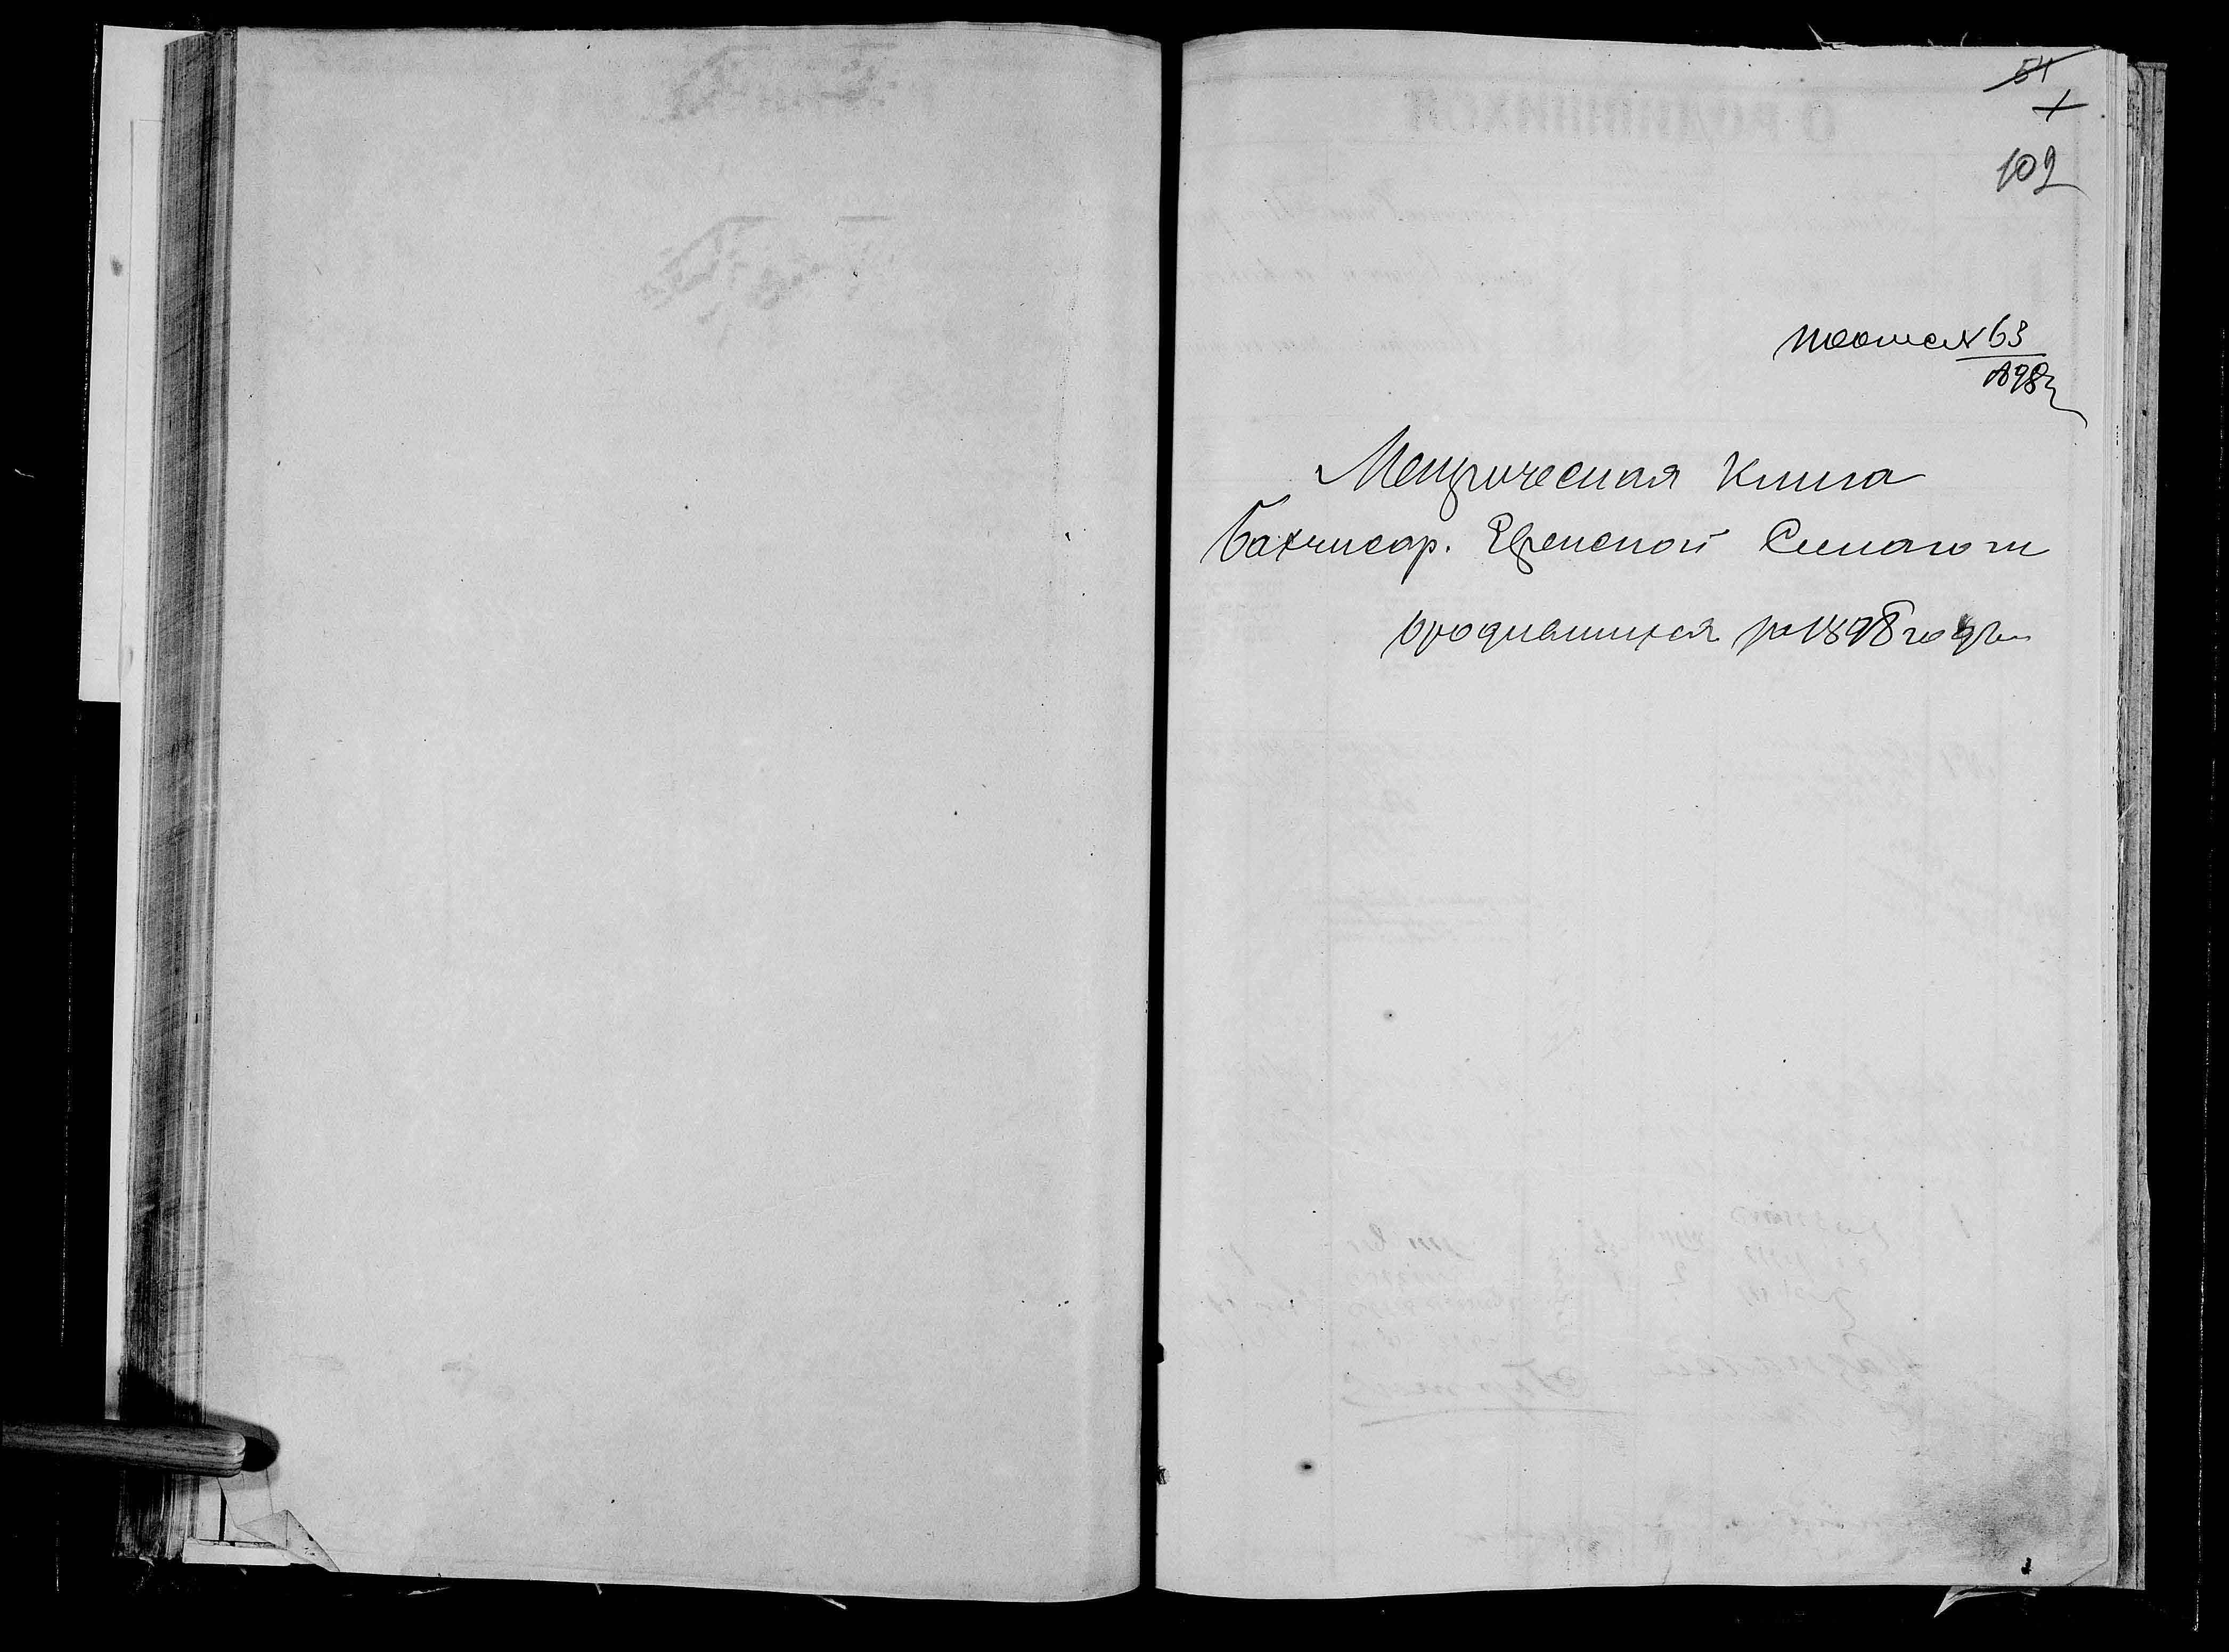 54
102
63
1898г
Метрическая Книга
Бахчисар. Еврейской Синагоги
о родившихся за 1898 годъ